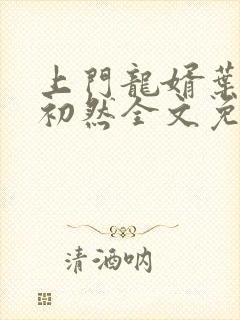 上門龍婿葉
初然全文免
清酒吶